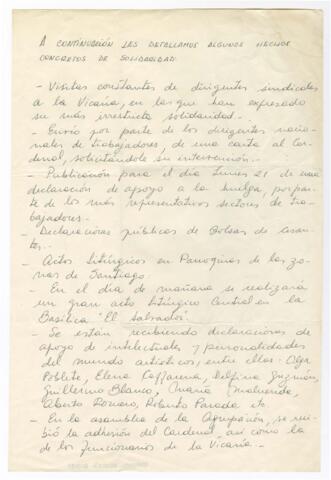 A CONTINUACIÓN LES DETALLAMOS ALGUNOS HECHOS
CONCRETOS DE SOLIDARIDAD:
- Visitas constantes de dirigentes sindicales
a la Vicaría, en las que han expresado
su más irrestricta solidaridad.-
- Envío por parte de los dirigentes nacio-
nales de trabajadores, de una carta al Car-
denal, solicitándole su intervención.-
- Publicación para el día Lunes 21 de una
declaración de apoyo a la huelga, por par-
te de los más representativos sectores de tra-
bajadores.-
- Declaraciones públicas de Bolsas de cesan-
tes.-
- Actos Litúrgicos en Parroquias de las zo-
nas de Santiago.-
- En el día de mañana se realizará
un gran acto Litúrgico Central en la
Basílica "El Salvador".-
- Se están recibiendo declaraciones de
apoyo de intelectuales y personalidades
del mundo artístico, entre ellos: Olga
Poblete, Elena Caffarena, Delfina Guzmán,
Guillermo Blanco, María Maluenda,
Alberto Lozano, Roberto Parada etc
- En la asamblea de la Agrupación, se reci-
bió la adhesión del Cardenal, así como la
de los funcionarios de la Vicaría.-